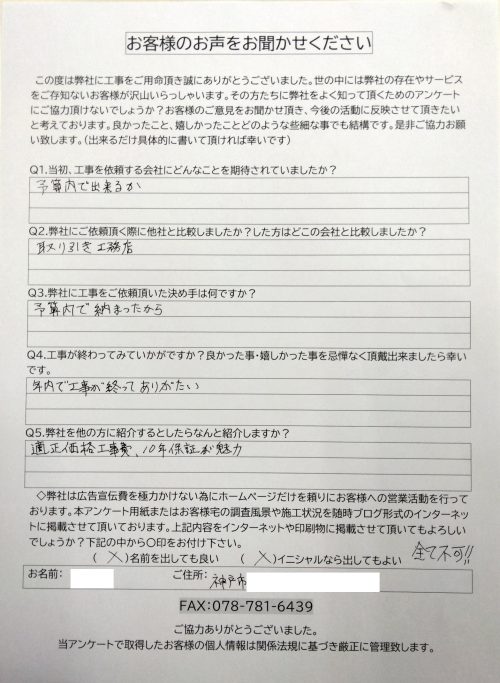 お客様のお声をお聞かせください
この度は弊社に工事をご用命頂き誠にありがとうございました。世の中には弊社の存在やサービス
をご存知ないお客様が沢山いらっしゃいます。その方たちに弊社をよく知って頂くためのアンケート
にご協力頂けないでしょうか？お客様のご意見をお聞かせ頂き、今後の活動に反映させて頂きたい
と考えております。良かったこと、嬉しかったことどのような些細な事でも結構です。是非ご協力お願
い致します。（出来るだけ具体的に書いて頂ければ幸いです）
Q1.当初、工事を依頼する会社にどんなことを期待されていましたか？
予算内で出来るか
Q2.弊社にご依頼頂く際に他社と比較しましたか？した方はどこの会社と比較しましたか？
取り引き工務店
Q3.弊社に工事をご依頼頂いた決め手は何ですか？
予算内で納まったから
Q4.工事が終わってみていかがですか？良かった事・嬉しかった事を忌憚なく頂戴出来ましたら幸い
です。
年内で工事が終ってありがたい
Q5.弊社を他の方に紹介するとしたらなんと紹介しますか？
適正価格工事費、10年保証が魅力
◇弊社は広告宣伝費を極力かけない為にホームページだけを頼りにお客様への営業活動を行って
おります。本アンケート用紙またはお客様宅の調査風景や施工状況を随時ブログ形式のインターネッ
トに掲載させて頂いております。上記内容をインターネットや印刷物に掲載させて頂いてもよろしい
でしょうか？下記の中から〇印をお付け下さい。
（ × ）名前を出しても良い （ × ）イニシャルなら出してもよい 全て不可!!
お名前： ご住所： 神戸市
FAX：078-781-6439
ご協力ありがとうございました。
当アンケートで取得したお客様の個人情報は関係法規に基づき厳正に管理致します。